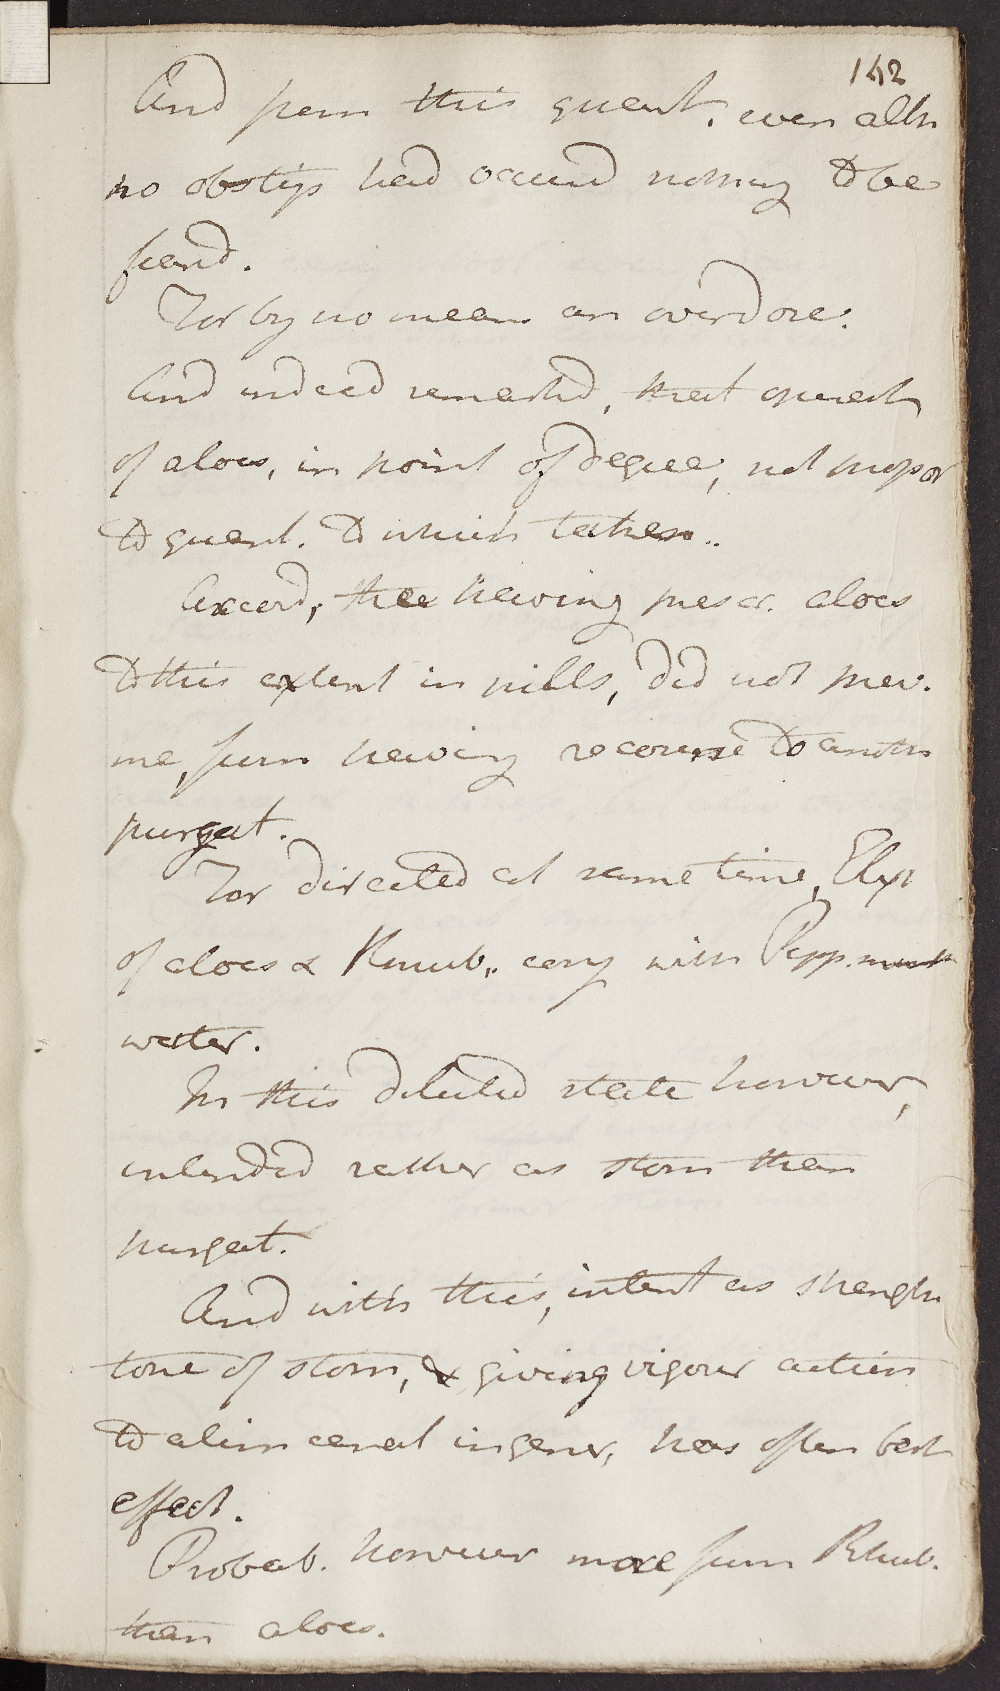 142
And from this quant. even altho
no obstip had occurd nothing to be
feard.
For by no mean an overdose.
And indeed remarkd, that operat
of aloes, in point of degree, not propor
to quant. to which taken..
Accord, the having prescr. aloes
to this extent in pills, did not prev.
me, from having recourse to anoth
purgat.
For directed at same time, Elix
of aloes & Rhub,. with Pepp.mint
water.
In this diluted state however,
intended rather as stom than
purgat.
And with this, intent as strength
tone of stom, & giving vigour action
to alim canal in gener, has often best
effect.
Probab. however more from Rhub.
than aloes.